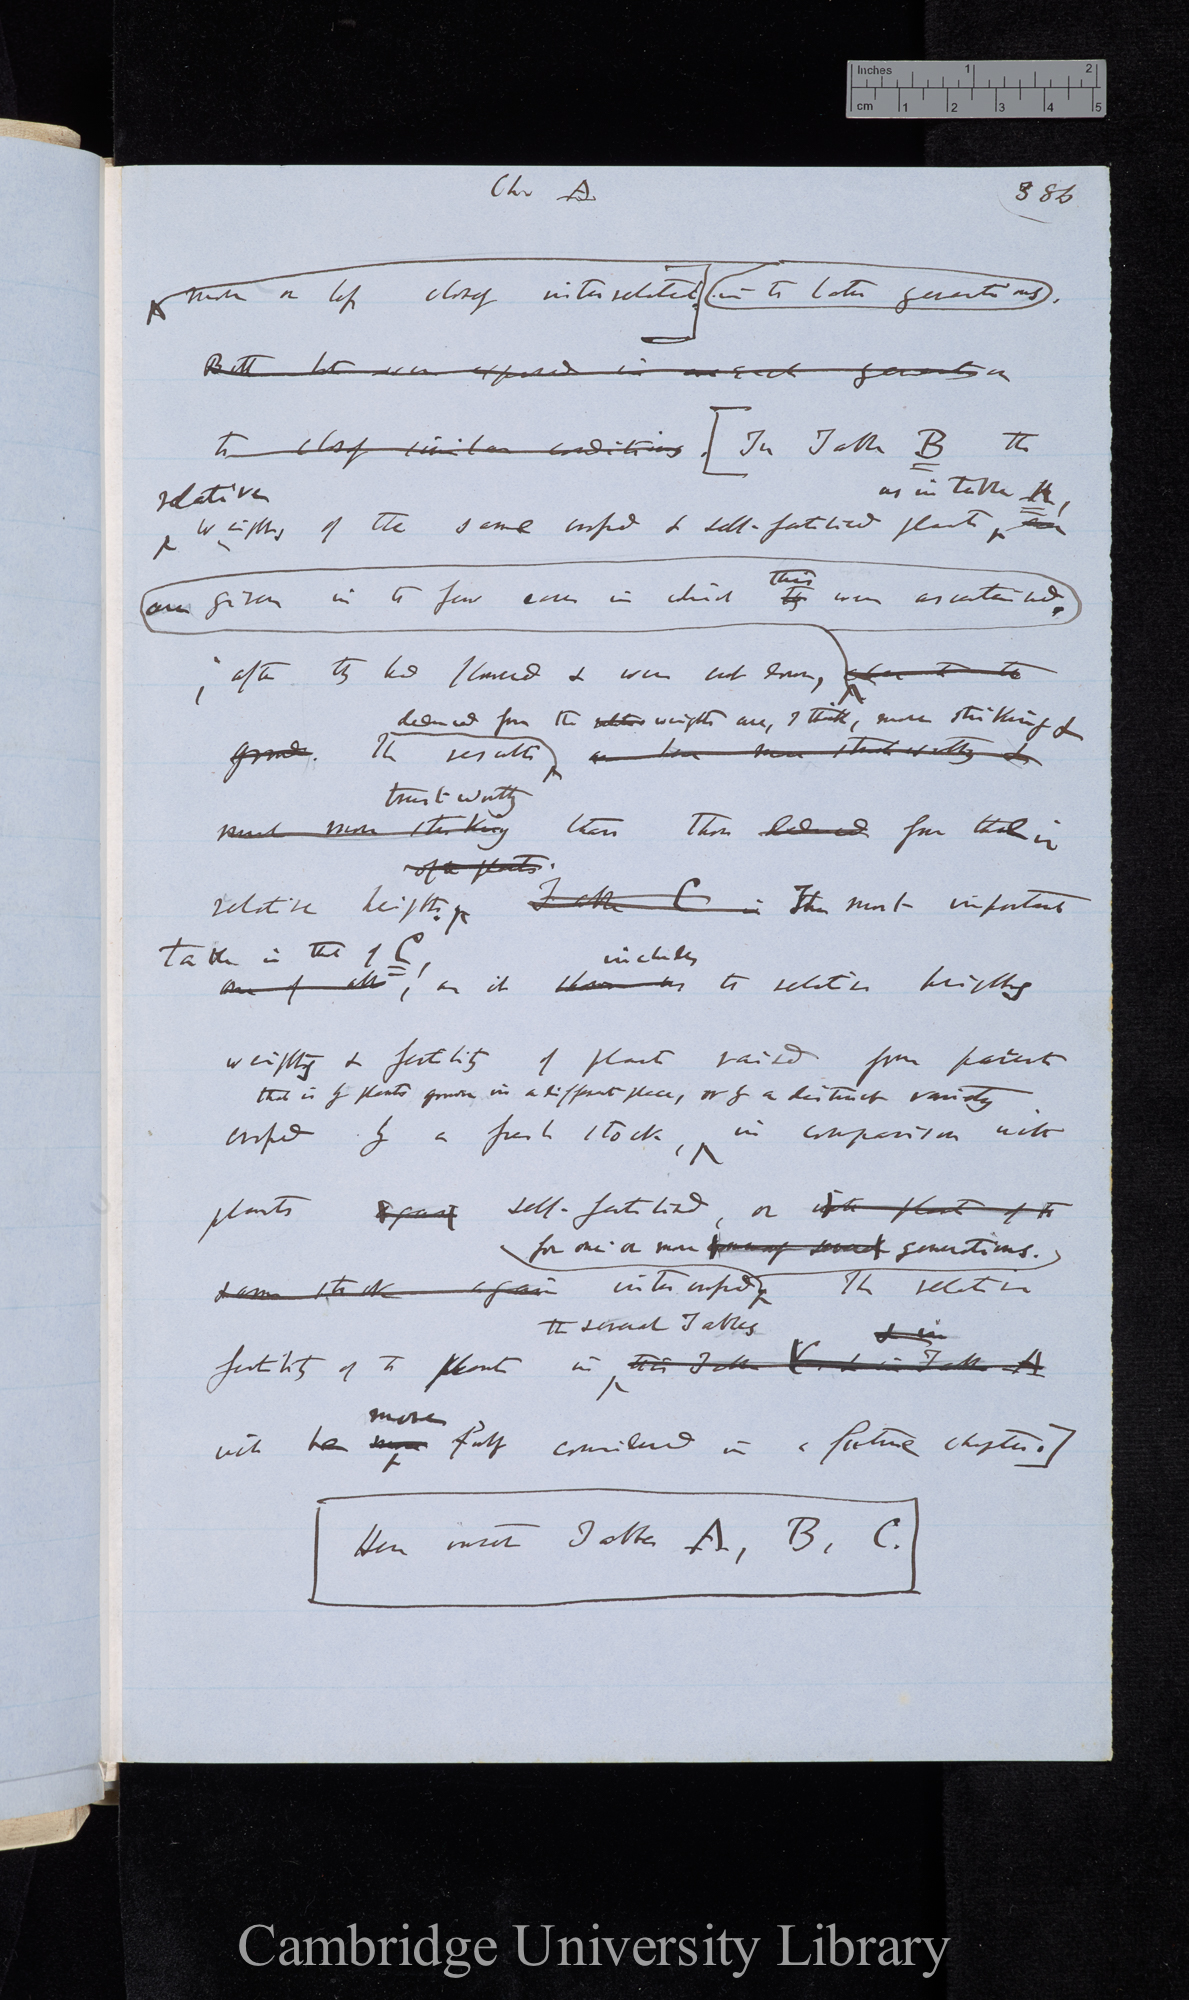 Inches 1 2
cm 1 2 3 4 5
Ch A
386
more or less closely interrelated in the later generations.
Both lots were exposed in each generation
to closely similar conditions. [In Table B the
relative as in table A,
weights of the same crossed & self-fertilised plants,
are given in the few cases in which this were ascertained.
; after they had flowered & were cut down,
deduced from the weights are, I think, more striking &
ground. The results are more trustworthy &
trustworthy
much more striking than those deduced from their
of the plants.
relative heights. Table C is The most important
table is that of C,
one of all; as it includes the relative heights
weights & fertility of plants raised from parents
that is by plants grown in a different place, or by a distinct variety
crossed by a fresh stock, in comparison with
plants again self-fertilised, or with plants of the
for one or more generations.
same stock again intercrossed The relative
the several Tables
& in
fertility of the plants in this Table C & in Table A
more
will be more fully considered in a future chapter.]
Here insert Tables A, B, C.
Cambridge University Library